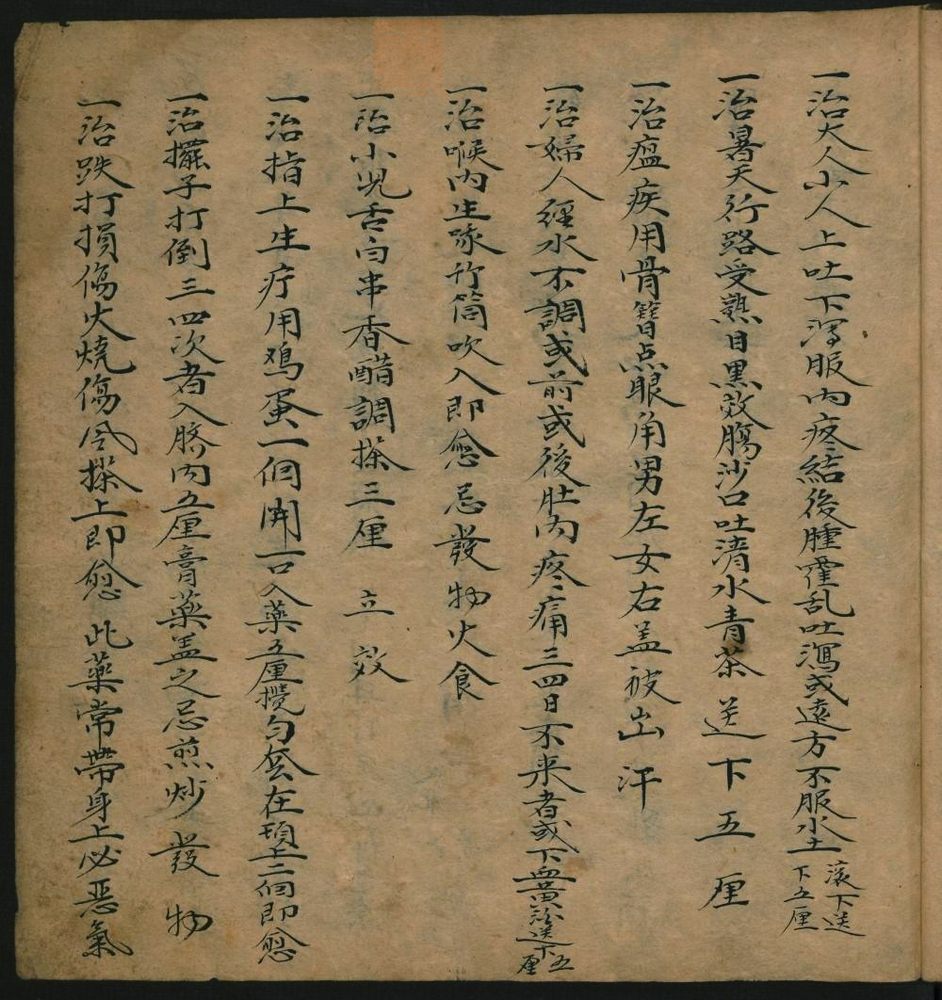 一治大人小人上吐下瀉服内疼結後腫霍乱吐瀉或遠方不服水土滚下送下五厘
一治暑天行路受熟目黑效腸沙口吐清水青茶送下五厘
一治瘟疾用骨簪点眼角男左女右盖被出汗
一治婦人經水不調或前或後肚内疼痛三四日不来者或下血黄送下五厘
一治喉内生竹筒吹入即愈忌發物火食
一治小児舌白串香醋調搽三厘立效
一治指上生疔用鸡蛋一個開一口入藥五厘攪匀套在頂上二個即愈
一治擺子打倒三四次者入脐内五厘膏藥盖之忌煎炒發物
一治跌打損傷火烧傷风搽上即愈此藥常帶身上必惡氣